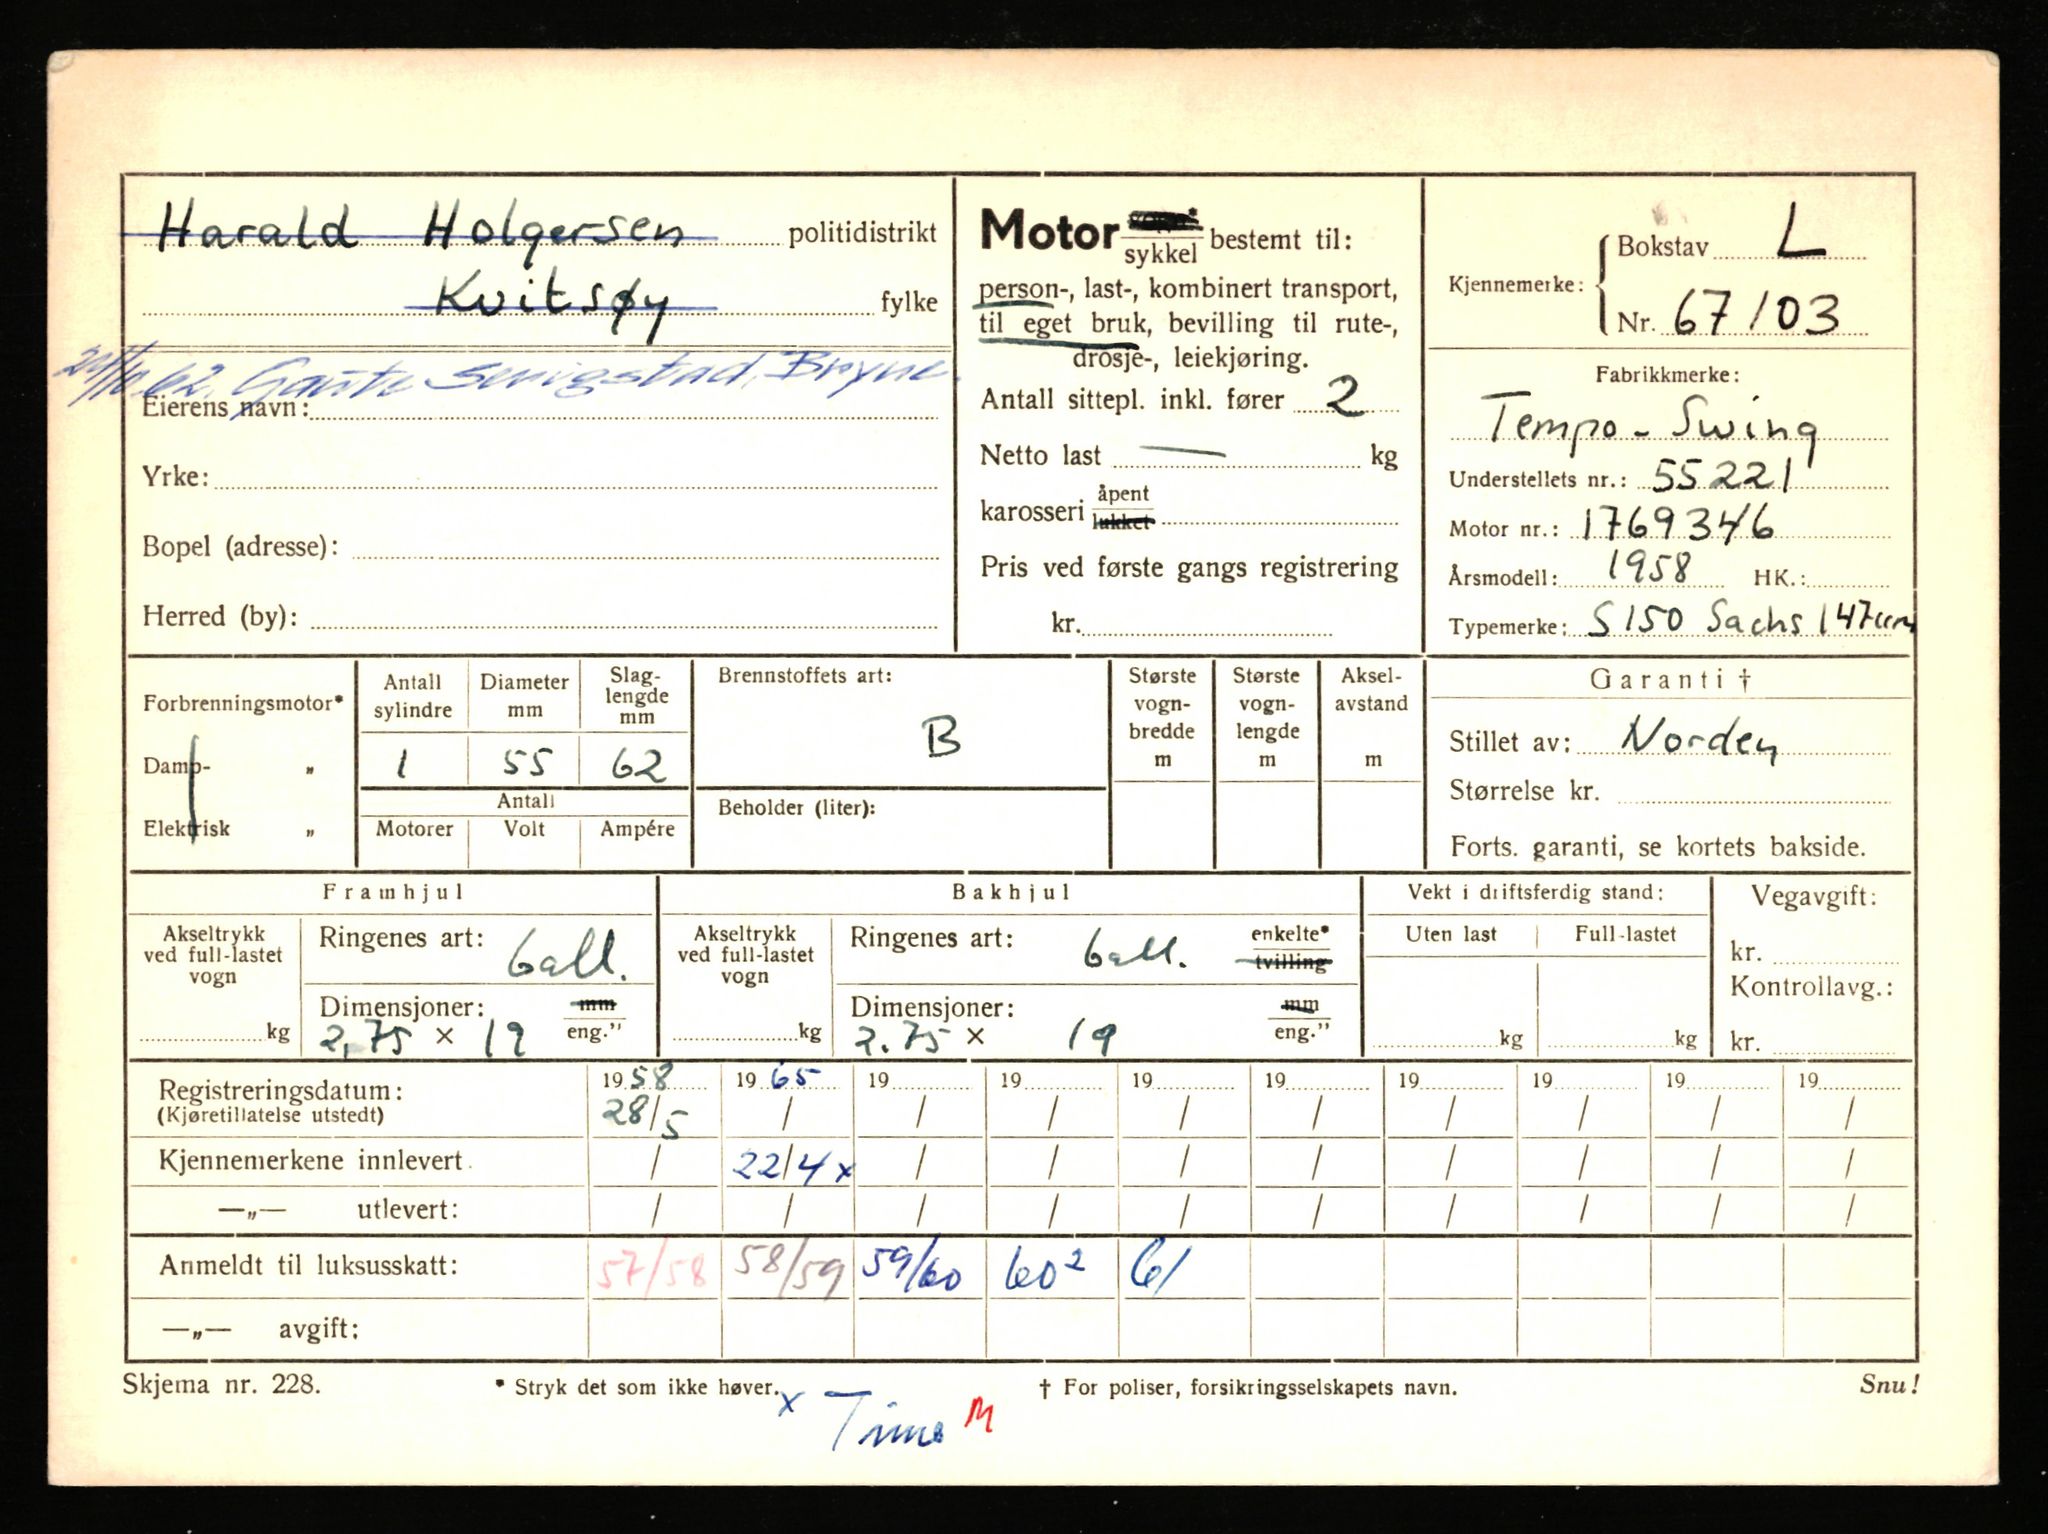 Harald Holgersen politidistrikt
Kvitsøy fylke
62. Gaute Bryne
Eierens navn:
Yrke:
Bopel (adresse):
Herred (by):
Motor sykkel bestemt til:
person-, last-, kombinert transport,
til eget bruk, bevilling til rute-,
drosje-, leiekjøring.
Antall sittepl. inkl. fører 2
Netto last — kg
karosseri åpent lukket
Pris ved første gangs registrering
kr.
Kjennemerke: Bokstav L
Nr. 67103
Fabrikkmerke:
Tempo - Swing
Understellets nr.: 55221
Motor nr.: 1769346
Årsmodell: 1958 HK.:
Typemerke: S 150 Sachs 147ccm
Forbrenningsmotor*
Damp- „
Elektrisk „
Antall sylindre Diameter mm Slag-lengde mm
1 55 62
Antall
Motorer Volt Ampére
Brennstoffets art:
B
Beholder (liter):
Største vogn-bredde m
Største vogn-lengde m
Aksel-avstand m
Garanti †
Stillet av: Norden
Størrelse kr.
Forts. garanti, se kortets bakside.
Framhjul
Akseltrykk ved full-lastet vogn
kg
Ringenes art: ball.
Dimensjoner: mm
2,75 × 19 eng."
Bakhjul
Akseltrykk ved full-lastet vogn
kg
Ringenes art: ball. enkelte* tvilling
Dimensjoner: mm
2.75 × 19 eng."
Vekt i driftsferdig stand:
Uten last Full-lastet
kg kg
Vegavgift:
kr.
Kontrollavg.:
kr.
Registreringsdatum: 19 58 19 65 19 19 19 19 19 19 19 19
(Kjøretillatelse utstedt) 28/5 / / / / / / / / /
Kjennemerkene innlevert / 22/4 x / / / / / / / /
—„— utlevert: / / / / / / / / / /
Anmeldt til luksusskatt: 57/58 58/59 59/60 60² 61
—„— avgift:
Skjema nr. 228. * Stryk det som ikke høver. † For poliser, forsikringsselskapets navn. Snu!
x Time M